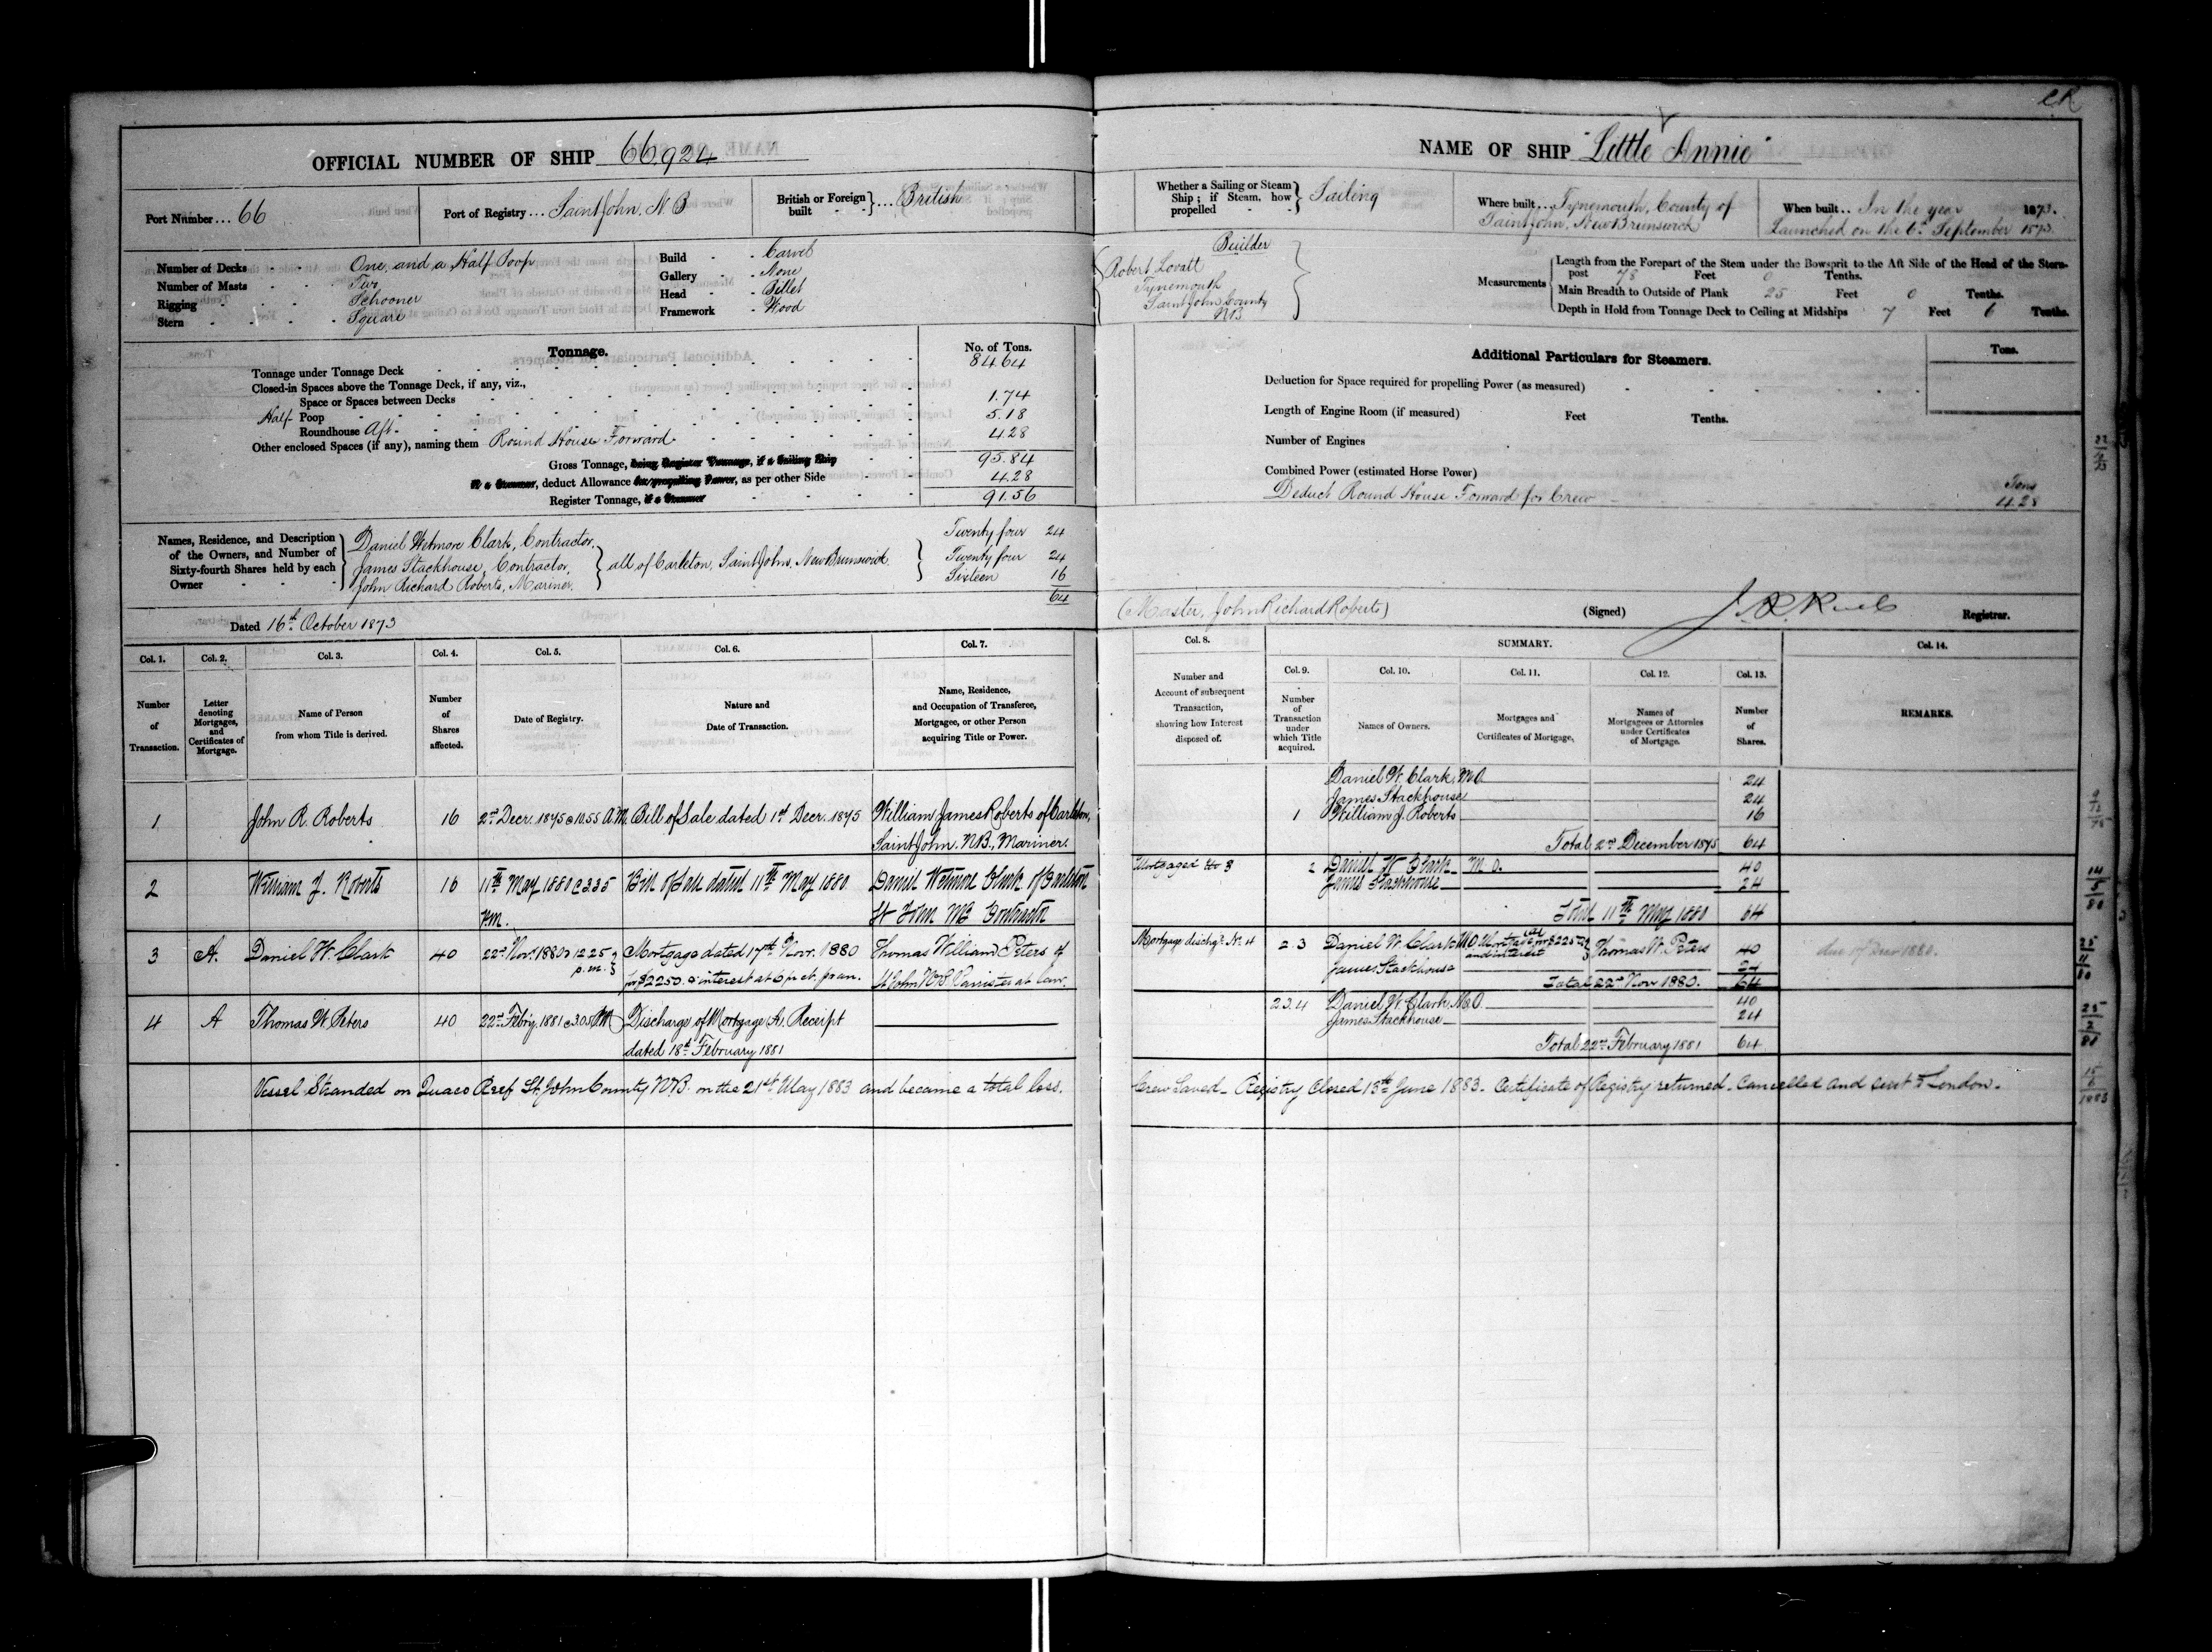 CR
OFFICIAL NUMBER OF SHIP 66,924
Port Number ... 66
Port of Registry ... Saint John, N.B
British or Foreign built } ... British
Number of Decks One, and a Half Poop
Number of Masts Two
Rigging Schooner
Stern Square
Build Carvel
Gallery None
Head Billet
Framework Wood
Tonnage.
No. of Tons.
Tonnage under Tonnage Deck 84.64
Closed-in Spaces above the Tonnage Deck, if any, viz.,
Space or Spaces between Decks
Half Poop 1.74
Roundhouse Aft. 5.18
Other enclosed Spaces (if any), naming them Round House Forward 4.28
Gross Tonnage, being Register Tonnage, if a Sailing Ship 95.84
If a Steamer, deduct Allowance for propelling Power, as per other Side 4.28
Register Tonnage, if a Steamer 91.56
Names, Residence, and Description of the Owners, and Number of Sixty-fourth Shares held by each Owner
Daniel Wetmore Clark, Contractor, Twenty four 24
James Stackhouse, Contractor, } all of Carleton, Saint John, New Brunswick } Twenty four 24
John Richard Roberts, Mariner. Sixteen 16
64
Dated 16th October 1873
NAME OF SHIP "Little Annie"
Whether a Sailing or Steam Ship; if Steam, how propelled } Sailing
Where built ... Tynemouth, County of
Saint John, New Brunswick
When built .. In the year 1873.
Launched on the 6th September 1873.
Builder
Robert Lovatt
Tynemouth
Saint John County
NB
Measurements
Length from the Forepart of the Stem under the Bowsprit to the Aft Side of the Head of the Stern-
post 78 Feet 0 Tenths.
Main Breadth to Outside of Plank 25 Feet 0 Tenths.
Depth in Hold from Tonnage Deck to Ceiling at Midships 7 Feet 6 Tenths.
Additional Particulars for Steamers.
Tons.
Deduction for Space required for propelling Power (as measured)
Length of Engine Room (if measured) Feet Tenths.
Number of Engines
Combined Power (estimated Horse Power)
Deduct Round House Forward for Crew Tons 4.28
(Master, John Richard Roberts) (Signed) Registrar.
Col. 1. Col. 2. Col. 3. Col. 4. Col. 5. Col. 6. Col. 7. Col. 8. SUMMARY. Col. 14.
Col. 9. Col. 10. Col. 11. Col. 12. Col. 13.
Number of Transaction.
Letter denoting Mortgages, and Certificates of Mortgage.
Name of Person from whom Title is derived.
Number of Shares affected.
Date of Registry.
Nature and Date of Transaction.
Name, Residence, and Occupation of Transferee, Mortgagee, or other Person acquiring Title or Power.
Number and Account of subsequent Transaction, showing how Interest disposed of.
Number of Transaction under which Title acquired.
Names of Owners.
Mortgages and Certificates of Mortgage.
Names of Mortgagees or Attornies under Certificates of Mortgage.
Number of Shares.
REMARKS.
1 John R. Roberts 16 2nd Decr. 1875 @ 10.55 A.M. Bill of Sale dated 1st Decr. 1875 William James Roberts of Carleton,
Saint John. N.B., Mariner.
Daniel W. Clark, M.O. 24
James Stackhouse 24
1 William J. Roberts 16
Total 2nd December 1875 64
2 William J. Roberts 16 11th May 1880 @ 3.35 p.m. Bill of Sale dated 11th May 1880 Daniel Wetmore Clark of Carleton
St John NB Contractor
Mortgaged No 3 2 Daniel W Clark M.O. 40
James Stackhouse 24
Total 11th May 1880 64
3 A. Daniel W. Clark 40 22nd Novr. 1880 @ 12.25 p.m. Mortgage dated 17th Novr. 1880
for $2250. & interest at 6 pr ct. pr an.
Thomas William Peters of
St John N.B. Barrister at law.
Mortgage dischgd. No. 4 2.3 Daniel W. Clark M.O. Mortgage (A) for $2250 and interest Thomas W. Peters 40 due 17 Decr 1880.
James Stackhouse 24
Total 22nd Nov 1880. 64
4 A Thomas W. Peters 40 22nd Febry. 1881 @ 3.05 PM Discharge of Mortgage A. Receipt
dated 18th February 1881
2.3.4 Daniel W. Clark, M.O. 40
James Stackhouse 24
Total 22nd February 1881 64
Vessel Stranded on Quaco Reef St. John County N.B. on the 21st May 1883 and became a total loss. Crew Saved - Registry Closed 13th June 1883. Certificate of Registry returned - Cancelled and sent to London.
14/5/80
25/11/80
25/2/81
15/6/1883